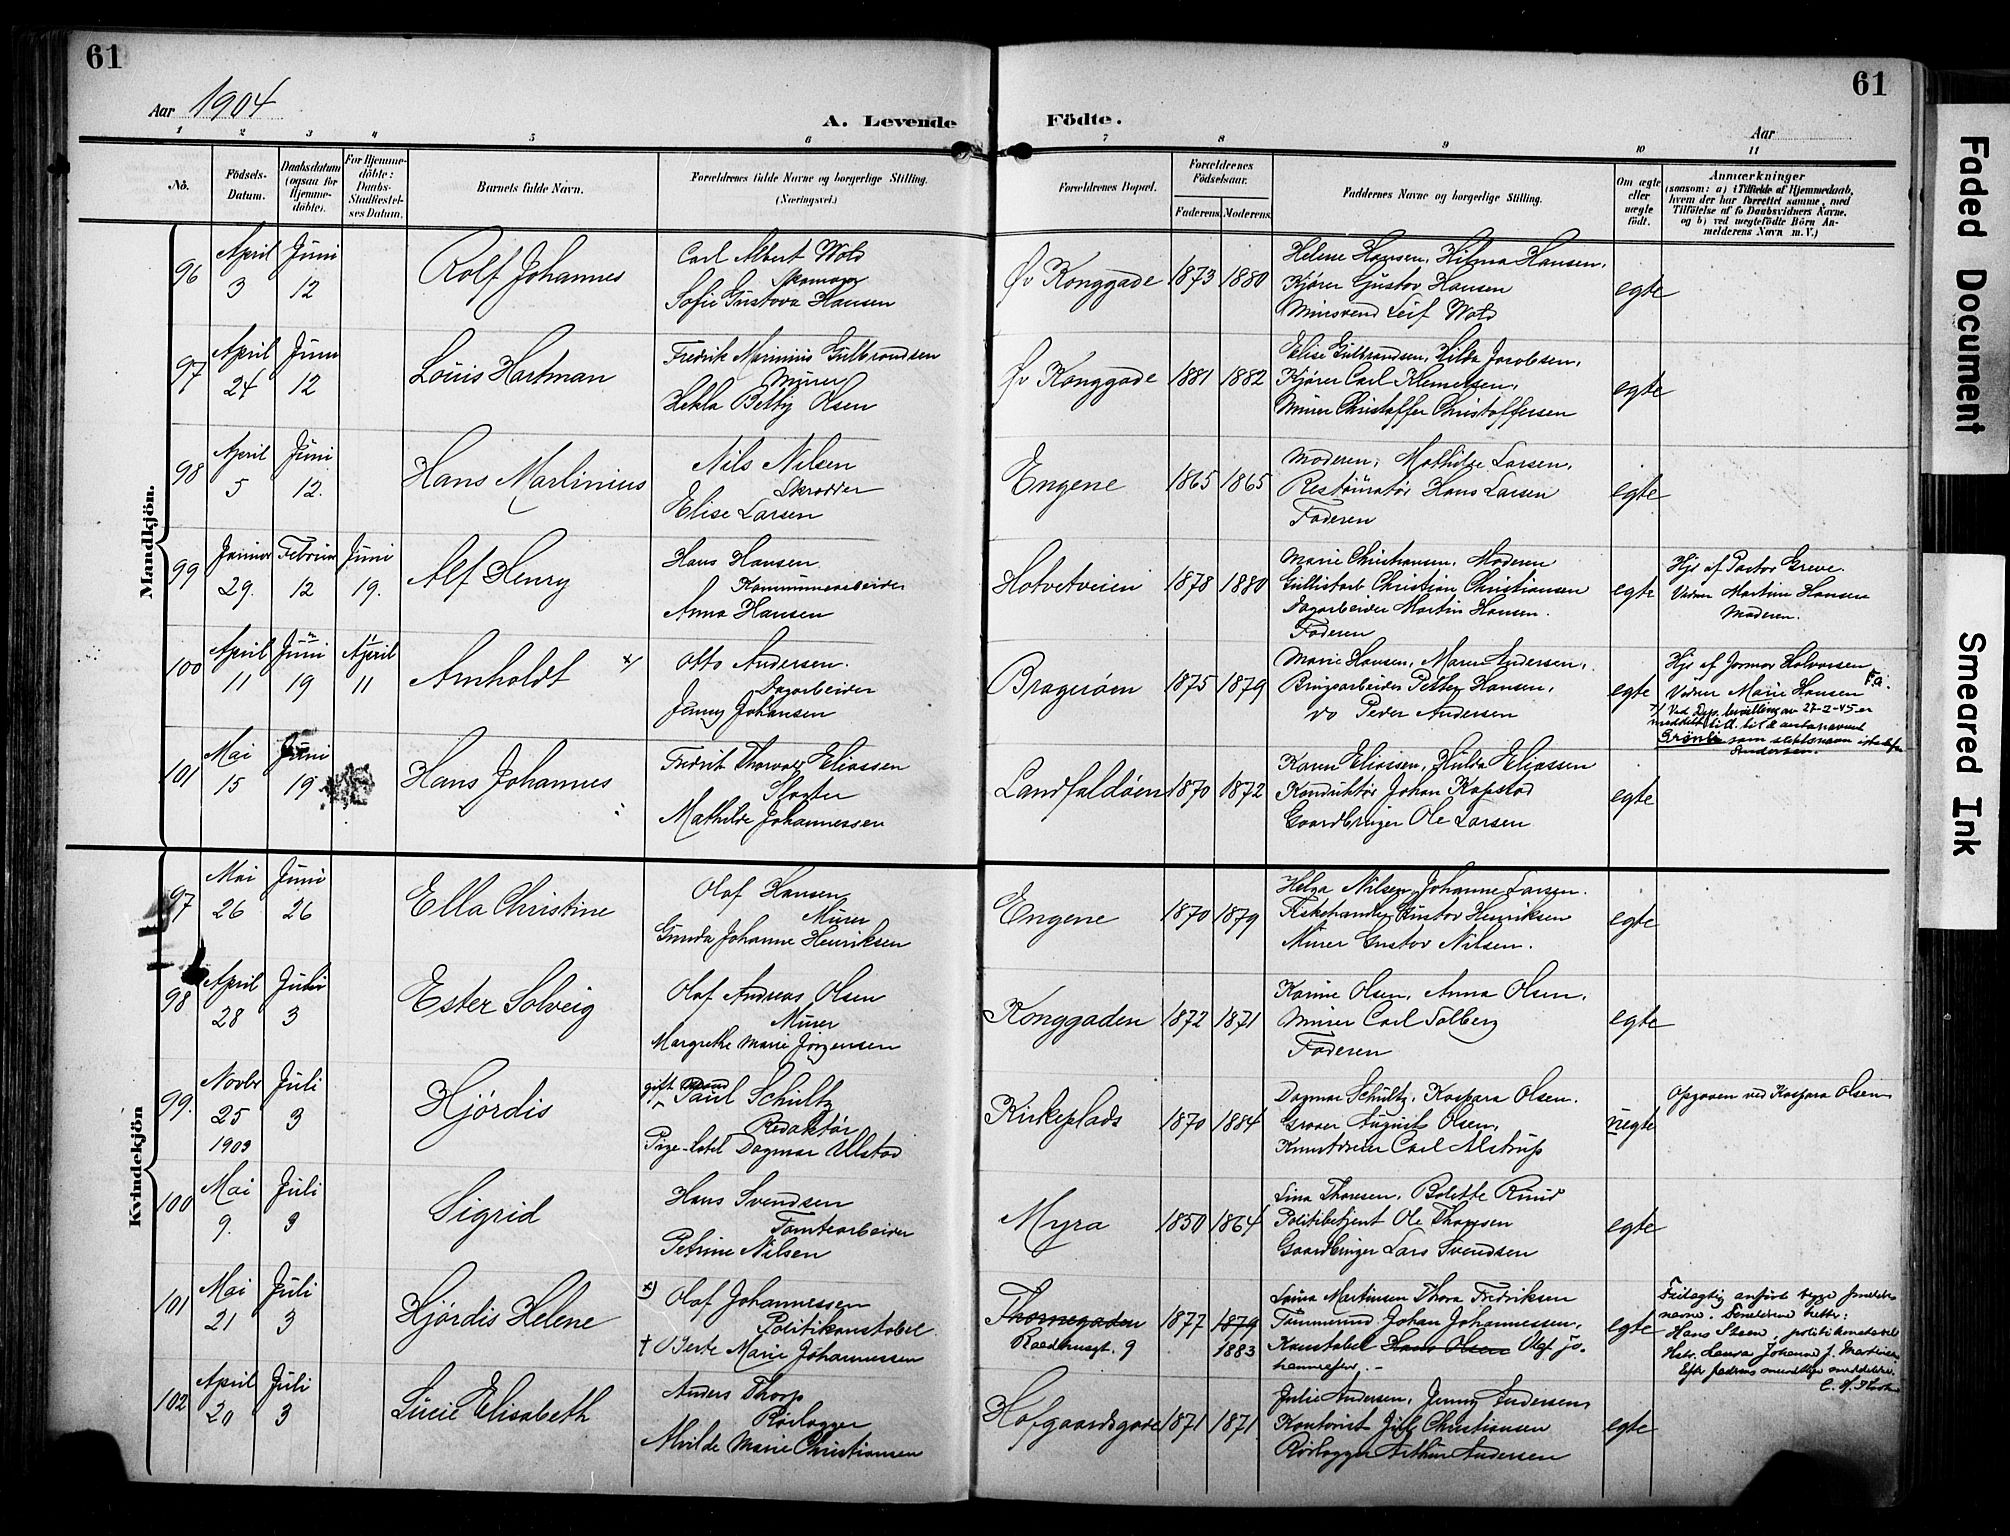 61
61
Aar 1904
A. Levende Födte.
Aar
1 2 3 4 5 6 7 8 9 10 11
No.
Födsels-Datum.
Daabsdatum (ogsaa for Hjemme-döbte).
For Hjemme-döbte: Daabs-Stadfæstel-ses Datum.
Barnets fulde Navn.
Forældrenes fulde Navne og borgerlige Stilling. (Næringsvei.)
Forældrenes Bopæl.
Forældrenes Födselsaar.
Faderens Moderens
Faddernes Navne og borgerlige Stilling.
Om ægte eller uægte født.
Anmærkninger
(saasom: a) i Tilfælde af Hjemmedaab, hvem der har forrettet samme, med Tilföielse af to Daabsvidners Navne, og b) ved uægtefödte Börn An-melderens Navn m. V.)
Mandkjön.
96 April 3 Juni 12 Rolf Johannes
Carl Albert Wold
Skomager
Sofie Gustava Hansen
Øv Konggade 1873 1880
Helene Hansen, Hilma Hansen,
Kjører Gustav Hansen
Murersvend Leif Wold
egte
97 April 24 Juni 12 Louis Hartman
Fredrik Marinius Gulbrandsen
Murer
Hekla Betty Olsen
Øv Konggade 1881 1882
Elise Gulbrandsen, Hilda Jacobsen,
Kjører Carl Klemetsen,
Murer Christoffer Christoffersen
egte
98 April 5 Juni 12. Hans Marlinius
Nils Nilsen
Skrædder
Elise Larsen
Engene 1865 1865
Moderen, Mathilde Larsen,
Restauratør Hans Larsen
Faderen
egte
99 Januar 29. Februar 12 Juni 19. Alf Henry
Hans Hansen
Kommunearbeider
Anna Hansen
Hotvetveien 1878 1880
Marie Christiansen, Moderen
Christian Christiansen
Dagarbeider Martin Hansen.
Faderen
egte
Hjd af Pastor Greve.
Vidner Martine Hansen
Moderen.
100 April 11 Juni 19 April 11 Arnholdt x)
Otto Andersen.
Dagarbeider
Jenny Johansen
Bragerøen 1875 1879
Marie Hansen, Maren Andersen,
Brugsarbeider Petter Hansen,
do Peder Andersen
egte
Hjd af Jormor Halvorsen
Vidner Marie Hansen
x) Ved Dep. bevilling av 27-2-45 er
meddelt till. til å anta navnet
Grønli som slektsnavn istedenfor
Andersen.
101 Mai 15 Juni 19 Hans Johannes
Fredrik Thorvald Eliassen
Slagter
Mathilde Johannessen
Landfaldøen 1870 1872
Karen Eliassen, Hulda Eliassen
Konduktør Johan Kopstad
Gaardbruger Ole Larsen
egte
Kvindekjön
97 Mai 26 Juni 26 Ella Christine
Olaf Hansen
Murer
Gunda Johanne Henriksen
Engene 1870 1879
Helga Nilsen, Johanne Larsen.
Fiskehandler Gustav Henriksen
Murer Gustav Nilsen.
egte
98 April 28 Juli 3 Ester Solveig
Olaf Andreas Olsen
Murer
Margrethe Marie Jørgensen
Konggaden 1872 1871
Karine Olsen, Anna Olsen,
Murer Carl Solberg
Faderen
egte
99. Novbr 25 1903 Juli 3 Hjørdis
gift Mand Paul Schultz
Redaktør
Pige Dagmar Ulstad
Kirkeplads 1870 1884
Dagmar Schultz, Kaspara Olsen.
Graver August Olsen,
Kunstdreier Carl Alstrup
uegte
Opgaven ved Kaspara Olsen
100 Mai 9. Juli 3 Sigrid
Hans Svendsen
Tomtearbeider
Petrine Nilsen
Myra 1850 1864
Lina Thoresen, Bolette Ruud
Politibetjent Ole Thoresen
Gaardbruger Lars Svendsen
egte
101 Mai 21 Juli 3 Hjørdis Helene
x) Olaf Johannessen
Politikonstabel
† Berte Marie Johannessen
Thornegaden
Raadhusgt. 9
1877 1879
1883
Laura Martinsen Thora Fredriksen
Tømmermd Johan Johannessen,
Konstabel Hans Olsen Olaf Jo-
hannessen. -
egte
Feilagtig anført begge forældres
navne. Forældrene hette:
Hans Steen, politikonstabel
Hstr. Laura Johanne J. Martinsen
Efter faderens mundtlige meddelelse.
102 April 20 Juli 3 Lucie Elisabeth
Anders Thorp
Rørlægger
Alvilde Marie Christiansen
Hofgaardsgade 1871 1871
Julie Andersen, Jenny Andersen,
Kontorist Juls Christiansen
Rørlægger Arthur Andersen
egte
Faded Document
Smeared Ink